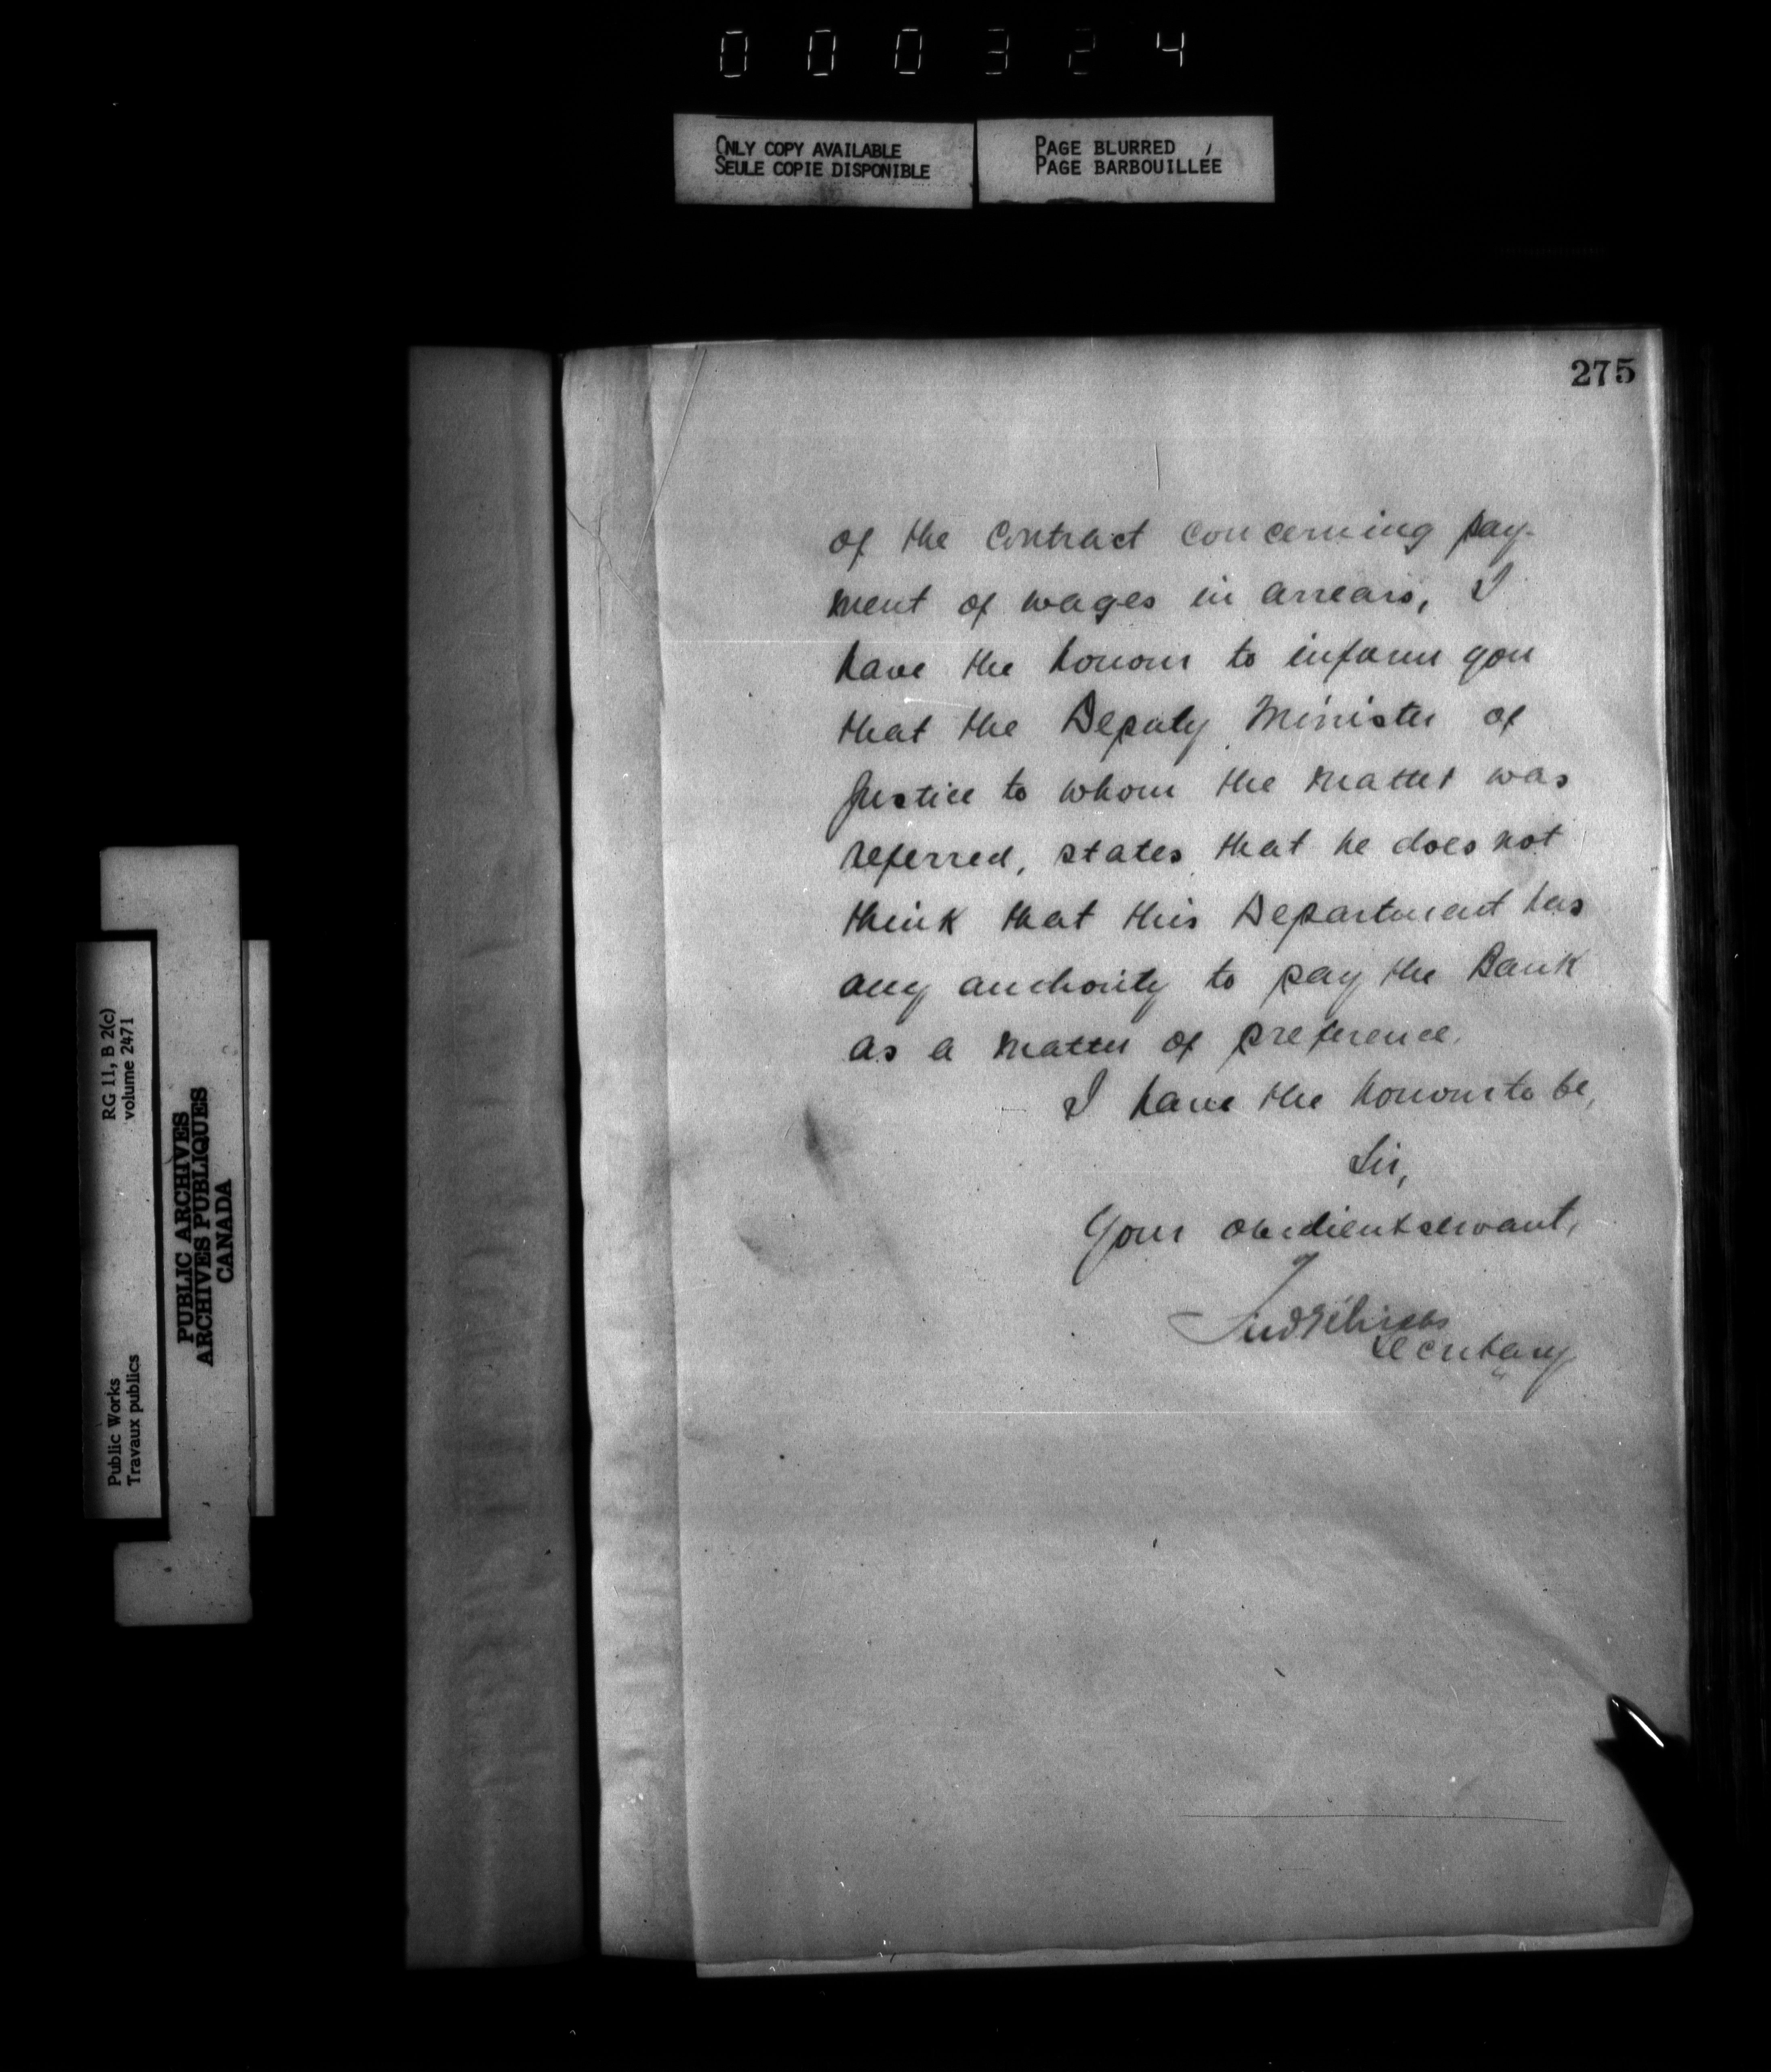 000324
ONLY COPY AVAILABLE
SEULE COPIE DISPONIBLE
PAGE BLURRED
PAGE BARBOUILLEE
275
of the Contract concerning pay-
ment of wages in arrears, I
have the honour to inform you
that the Deputy Minister of
Justice to whom the matter was
referred, states that he does not
think that this Department has
any authority to pay the Bank
as a matter of preference.
I have the honour to be,
Sir,
Your obedient servant,
Secretary
RG 11, B 2(c)
volume 2471
Public Works
Travaux publics
PUBLIC ARCHIVES
ARCHIVES PUBLIQUES
CANADA